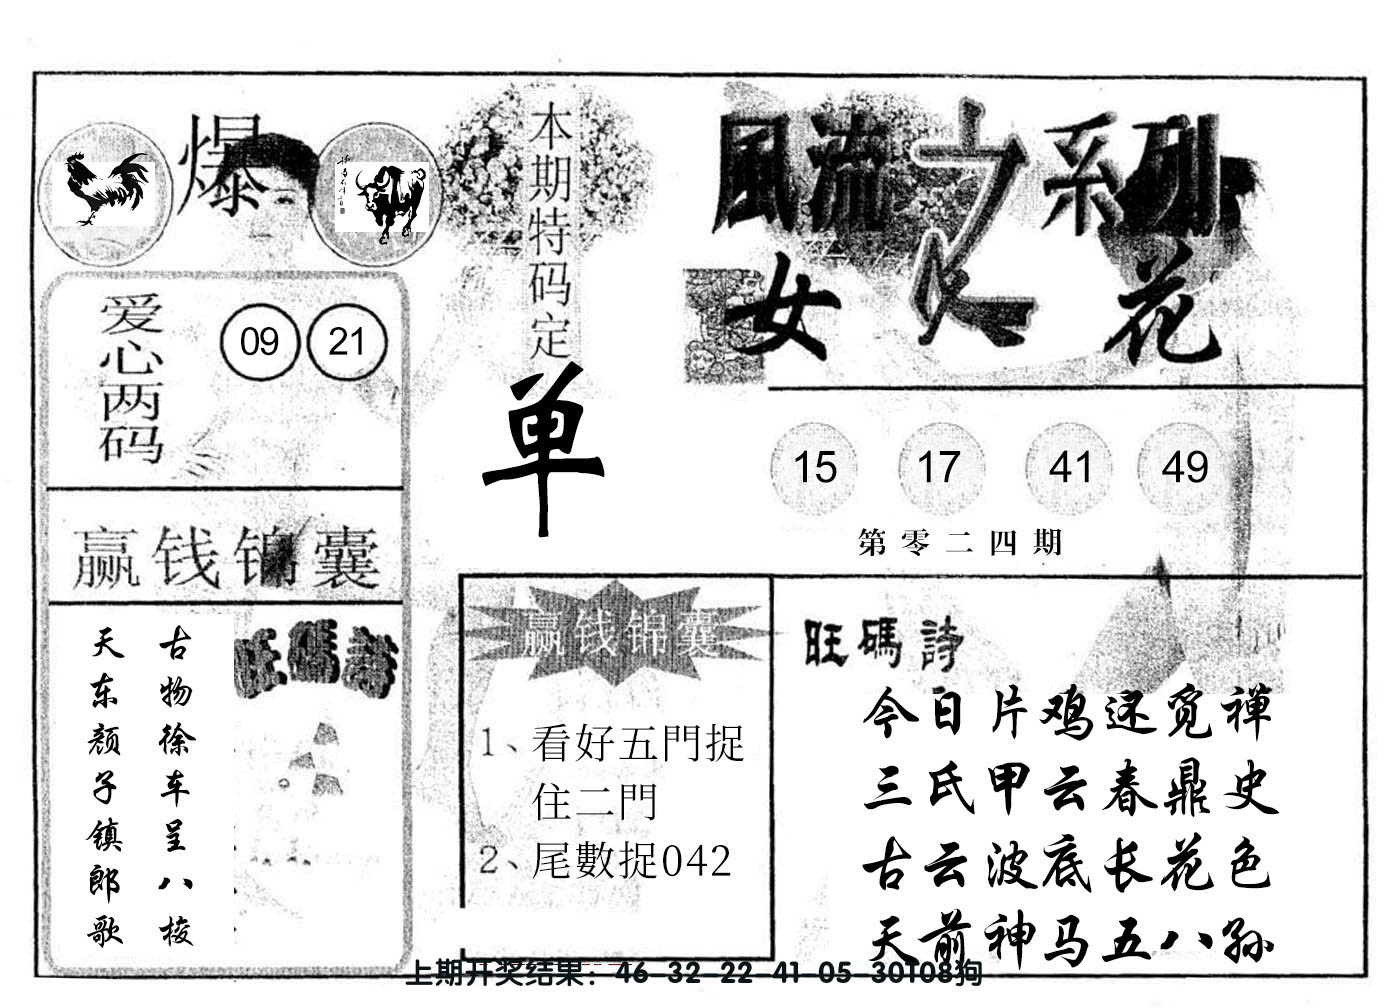 爆
本期特码定
单
風流之系列
女人花
爱心两码
09 21
15 17 41 49
第零二四期
赢钱锦囊
古物徐车呈八梭
天东颜子镇郎歌
旺碼詩
赢钱锦囊
1、看好五門捉
住二門
2、尾數捉042
旺碼詩
今日片鸡还觅禅
三氏甲云春鼎史
古云波底长花色
天前神马五八孙
上期开奖结果：46-32-22-41-05-30T08狗